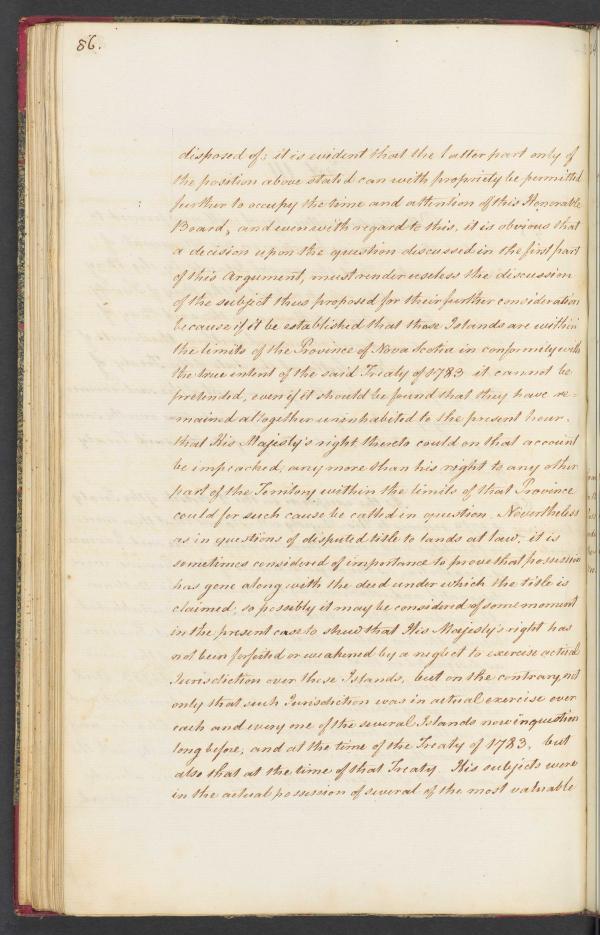 86.
disposed of; it is evident that the latter part only of
the position above stated can with propriety be permitted
further to occupy the time and attention of this Honorable
Board, and even with regard to this, it is obvious that
a decision upon the question discussed in the first part
of this Argument, must render useless the discussion
of the subject thus proposed for their further consideration
because if it be established that those Islands are within
the limits of the Province of Nova Scotia in conformity with
the true intent of the said Treaty of 1783 it cannot be
pretended, even if it should be found that they have re=
mained altogether uninhabited to the present hour,
that His Majesty's right thereto could on that account
be impeached, any more than his right to any other
part of the Territory within the limits of that Province
could for such cause be called in question. Nevertheless
as in questions of disputed title to lands at law, it is
sometimes considered of importance to prove that possession
has gone along with the deed under which the title is
claimed, so possibly it may be considered of some moment
in the present case to shew that His Majesty's right has
not been forfeited or weakened by a neglect to exercise actual
Jurisdiction over these Islands, but on the contrary, not
only that such Jurisdiction was in actual exercise over
each and every one of the several Islands now in question
long before, and at the time of the Treaty of 1783, but
also that at the time of that Treaty His subjects were
in the actual possession of several of the most valuable